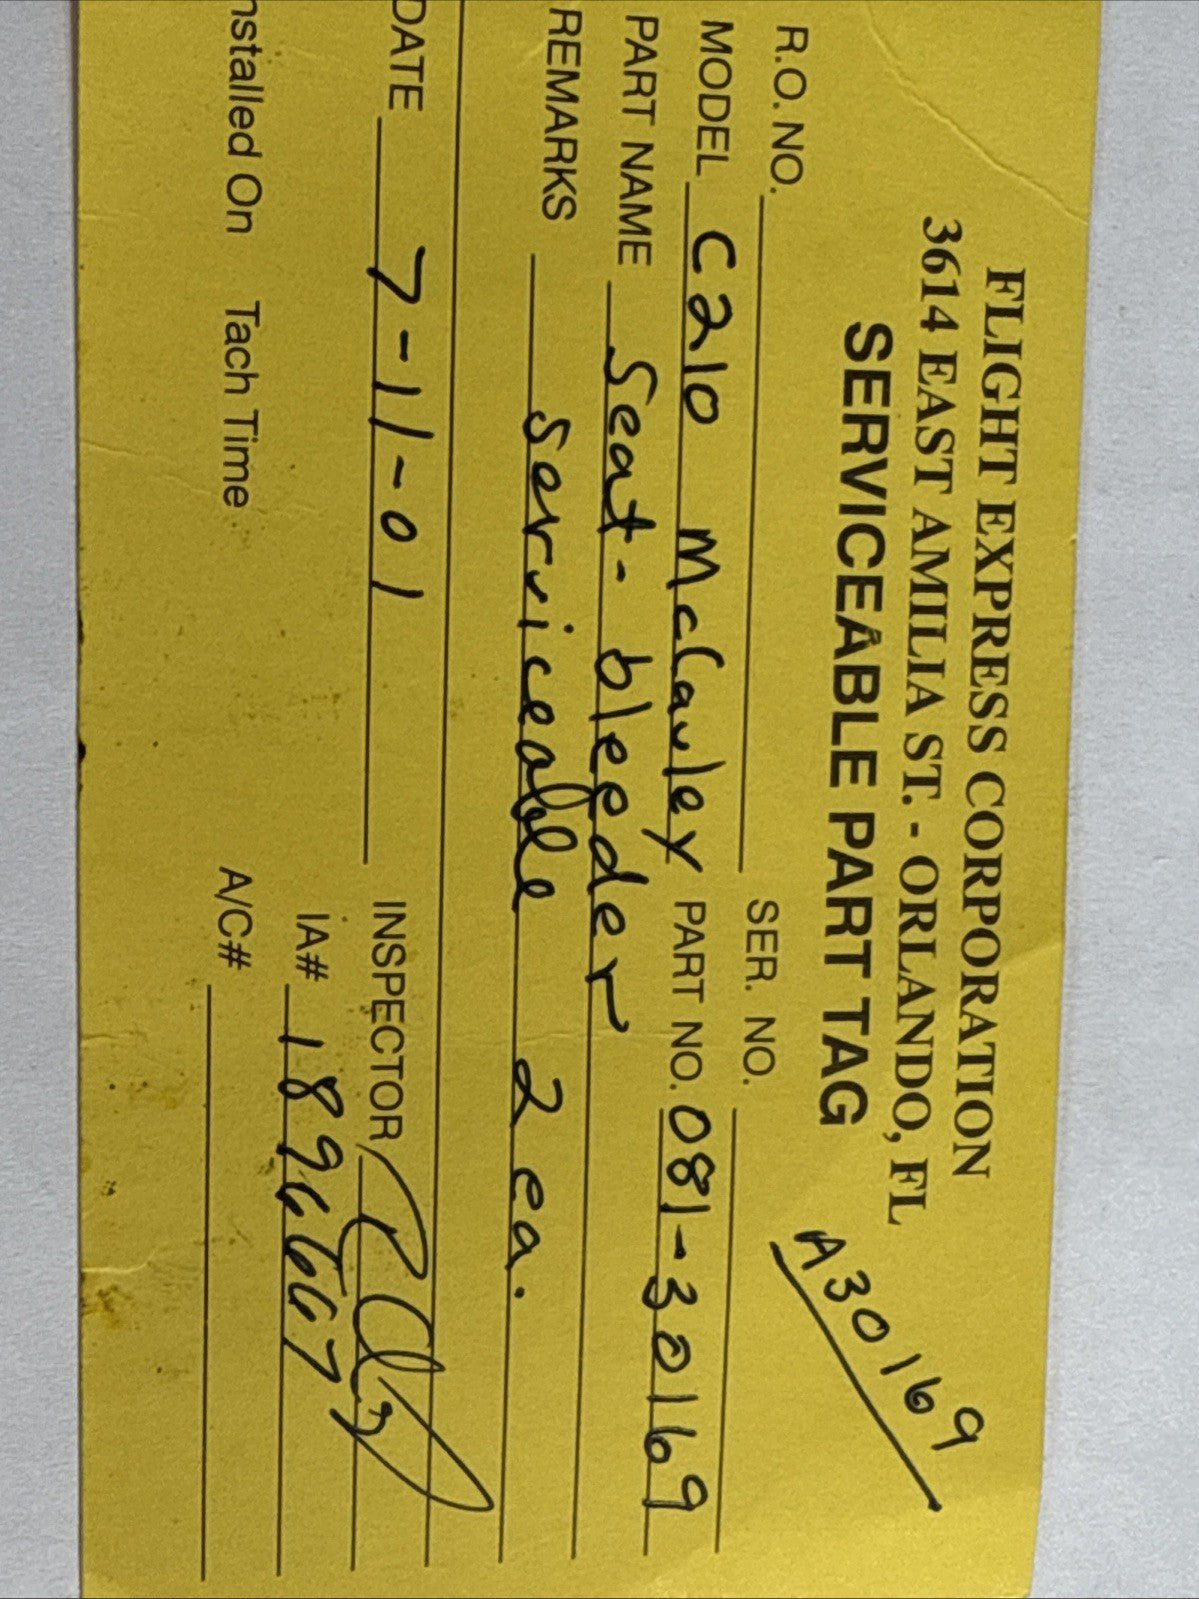 FLIGHT EXPRESS CORPORATION
3614 EAST AMILIA ST. - ORLANDO, FL
SERVICEABLE PART TAG
A30169
R.O. NO. SER. NO.
MODEL C210 McCauley PART NO. 081-30169
PART NAME Seat- bleeder
REMARKS Serviceable 2 ea.
DATE 7-11-01 INSPECTOR
IA# 1896667
nstalled On Tach Time A/C#